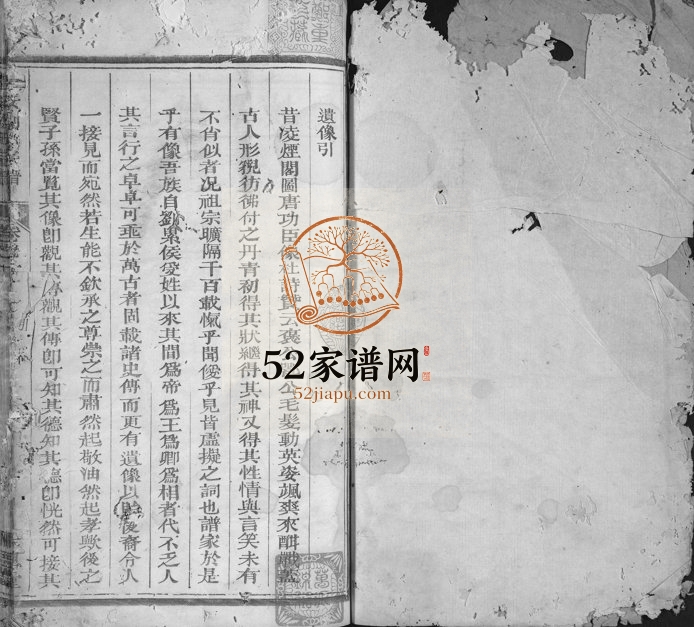 遺像引
昔凌煙閣圖唐功臣像杜詩贊云褒公毛髮動英姿颯爽來酣戰蓋
古人形貌彷彿付之丹青初得其狀繼得其神又得其性情與言笑未有
不肖似者况祖宗曠隔千百載愾乎聞僾乎見皆虛擬之詞也譜家於是
乎有像吾族自劉累侯受姓以來其間為帝為王為卿為相者代不乏人
其言行之卓卓可垂於萬古者固載諸史傳而更有遺像以貽後裔令人
一接見而宛然若生能不欽承之尊崇之而肅然起敬油然起孝歟後之
賢子孫當覧其像卽觀其傳觀其傳卽可知其德知其德卽恍然可接其
52家谱网
52jiapu.com